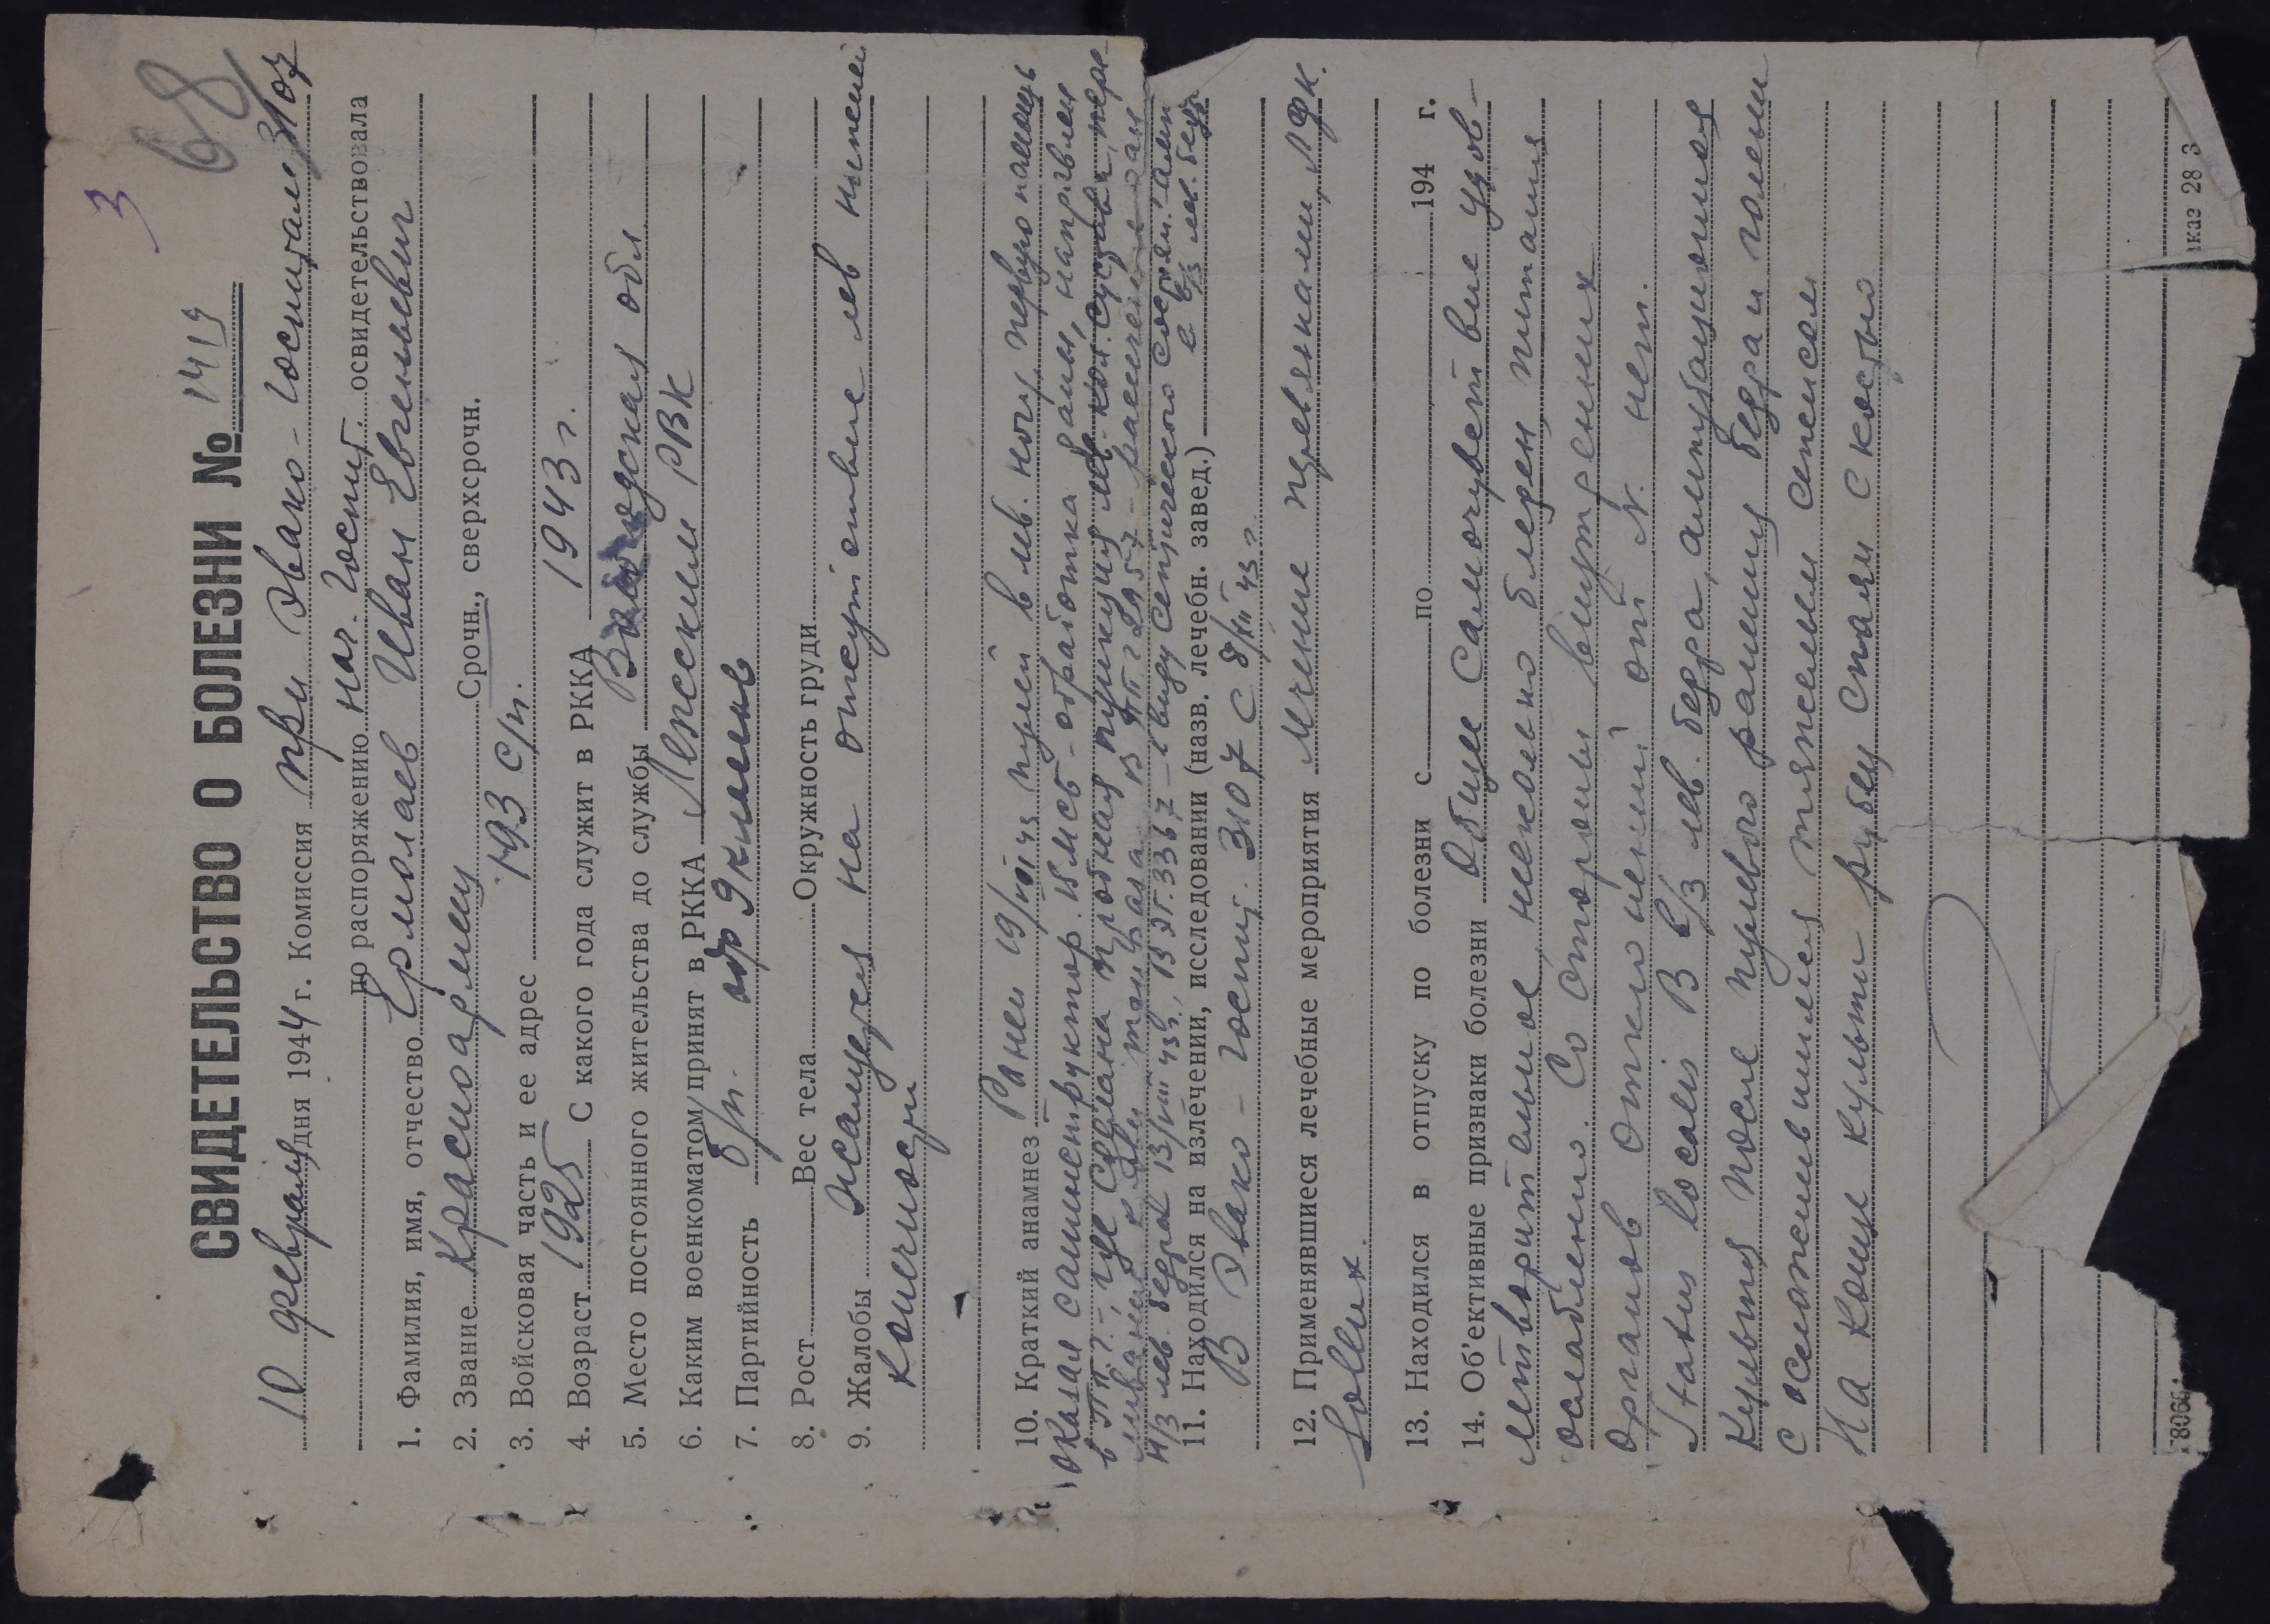 3
68
СВИДЕТЕЛЬСТВО О БОЛЕЗНИ № 1419
10 февраля дня 1944 г. Комиссия при Эвако-Госпитале 3107
по распоряжению нач. Госпит. освидетельствовала
1. Фамилия, имя, отчество Ермолаев Иван Евгеньевич
2. Звание Красноармеец Срочн., сверхсрочн.
3. Войсковая часть и ее адрес 193 с/п.
4. Возраст 1925 С какого года служит в РККА 1943 г.
5. Место постоянного жительства до службы Вологодская обл
6. Каким военкоматом принят в РККА РВК
7. Партийность б/п. обр 9 классов
8. Рост Вес тела Окружность груди
9. Жалобы Жалуется на отсутствие лев нижней
конечности
10. Краткий анамнез Ранен 19/VII 43 пулей в лев. ногу, первую помощь
оказал санинструктор. В МСБ - обработка раны, направлен
в ППГ - где сделана пробная пункция лев. кол. сустава, пере-
ливание крови. В ППГ 2957 - рассечение ран
н/3 лев. бедра 13/VIII 43 г., в ЭГ. 3367 - ввиду септического состоян. амп
в в/3 лев. бедр
11. Находился на излечении, исследовании (назв. лечебн. завед.)
В Эвако - госпит. 3107 с 8/XII 43 г
12. Применявшиеся лечебные мероприятия Лечение перевязками, ЛФК.
Sollux.
13. Находился в отпуску по болезни с по 194 г.
14. Об'ективные признаки болезни Общее самочувствие удов-
летворительное, несколько бледен, питания
ослаблено. Со стороны внутренних
органов отклонений от N. нет.
Status localis В в/3 лев. бедра, ампутационная
культя после пулевого ранения бедра и голени
с осложнившимся тяжелым сепсисом
На конце культи рубец спаян с костью
каз 28 3